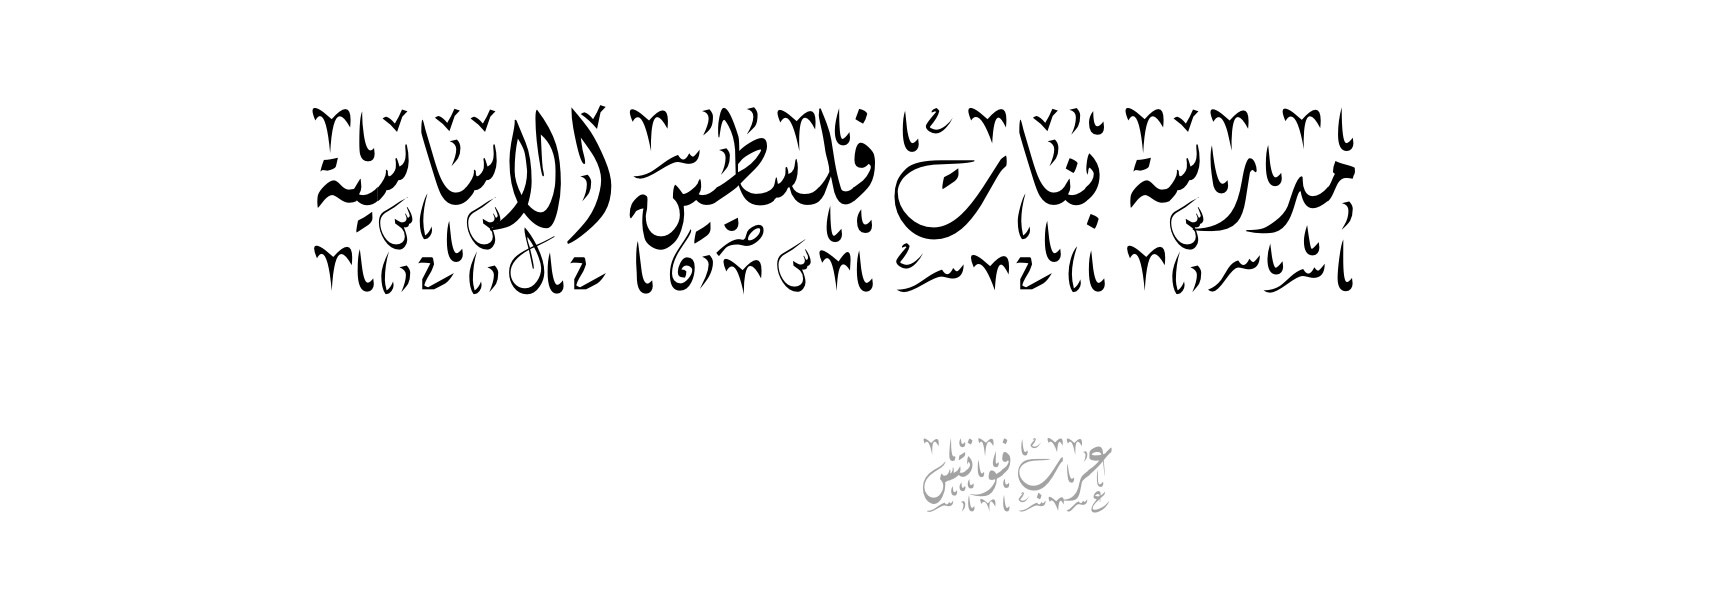 مدرسة بنات فلسطين الاساسية
عرب فونتس